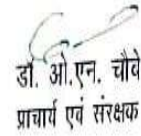 डॉ. ओ.एन. चौबे
प्राचार्य एवं संरक्षक